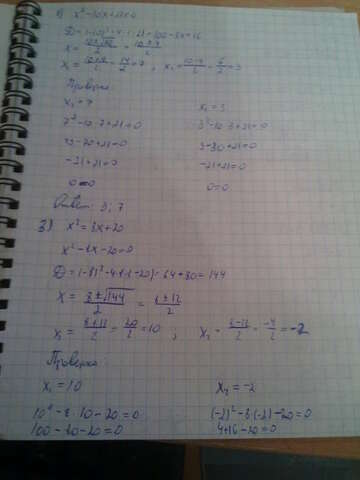 x² - 10x + 21 = 0
D = (-10)² - 4 · 1 · 21 = 100 - 84 = 16
x = (10 ± √16)/2 = (10 ± 4)/2
x₁ = (10+4)/2 = 14/2 = 7 ; x₂ = (10-4)/2 = 6/2 = 3
Проверка
x₁ = 7 x₂ = 3
7² - 10 · 7 + 21 = 0 3² - 10 · 3 + 21 = 0
49 - 70 + 21 = 0 9 - 30 + 21 = 0
-21 + 21 = 0 -21 + 21 = 0
0 = 0 0 = 0
Ответ: 3; 7
3) x² = 8x + 20
x² - 8x - 20 = 0
D = (-8)² - 4 · 1 · (-20) = 64 + 80 = 144
x = (8 ± √144)/2 = (8 ± 12)/2
x₁ = (8+12)/2 = 20/2 = 10 ; x₂ = (8-12)/2 = -4/2 = -2
Проверка:
x₁ = 10 x₂ = -2
10² - 8 · 10 - 20 = 0 (-2)² - 8 · (-2) - 20 = 0
100 - 80 - 20 = 0 4 + 16 - 20 = 0